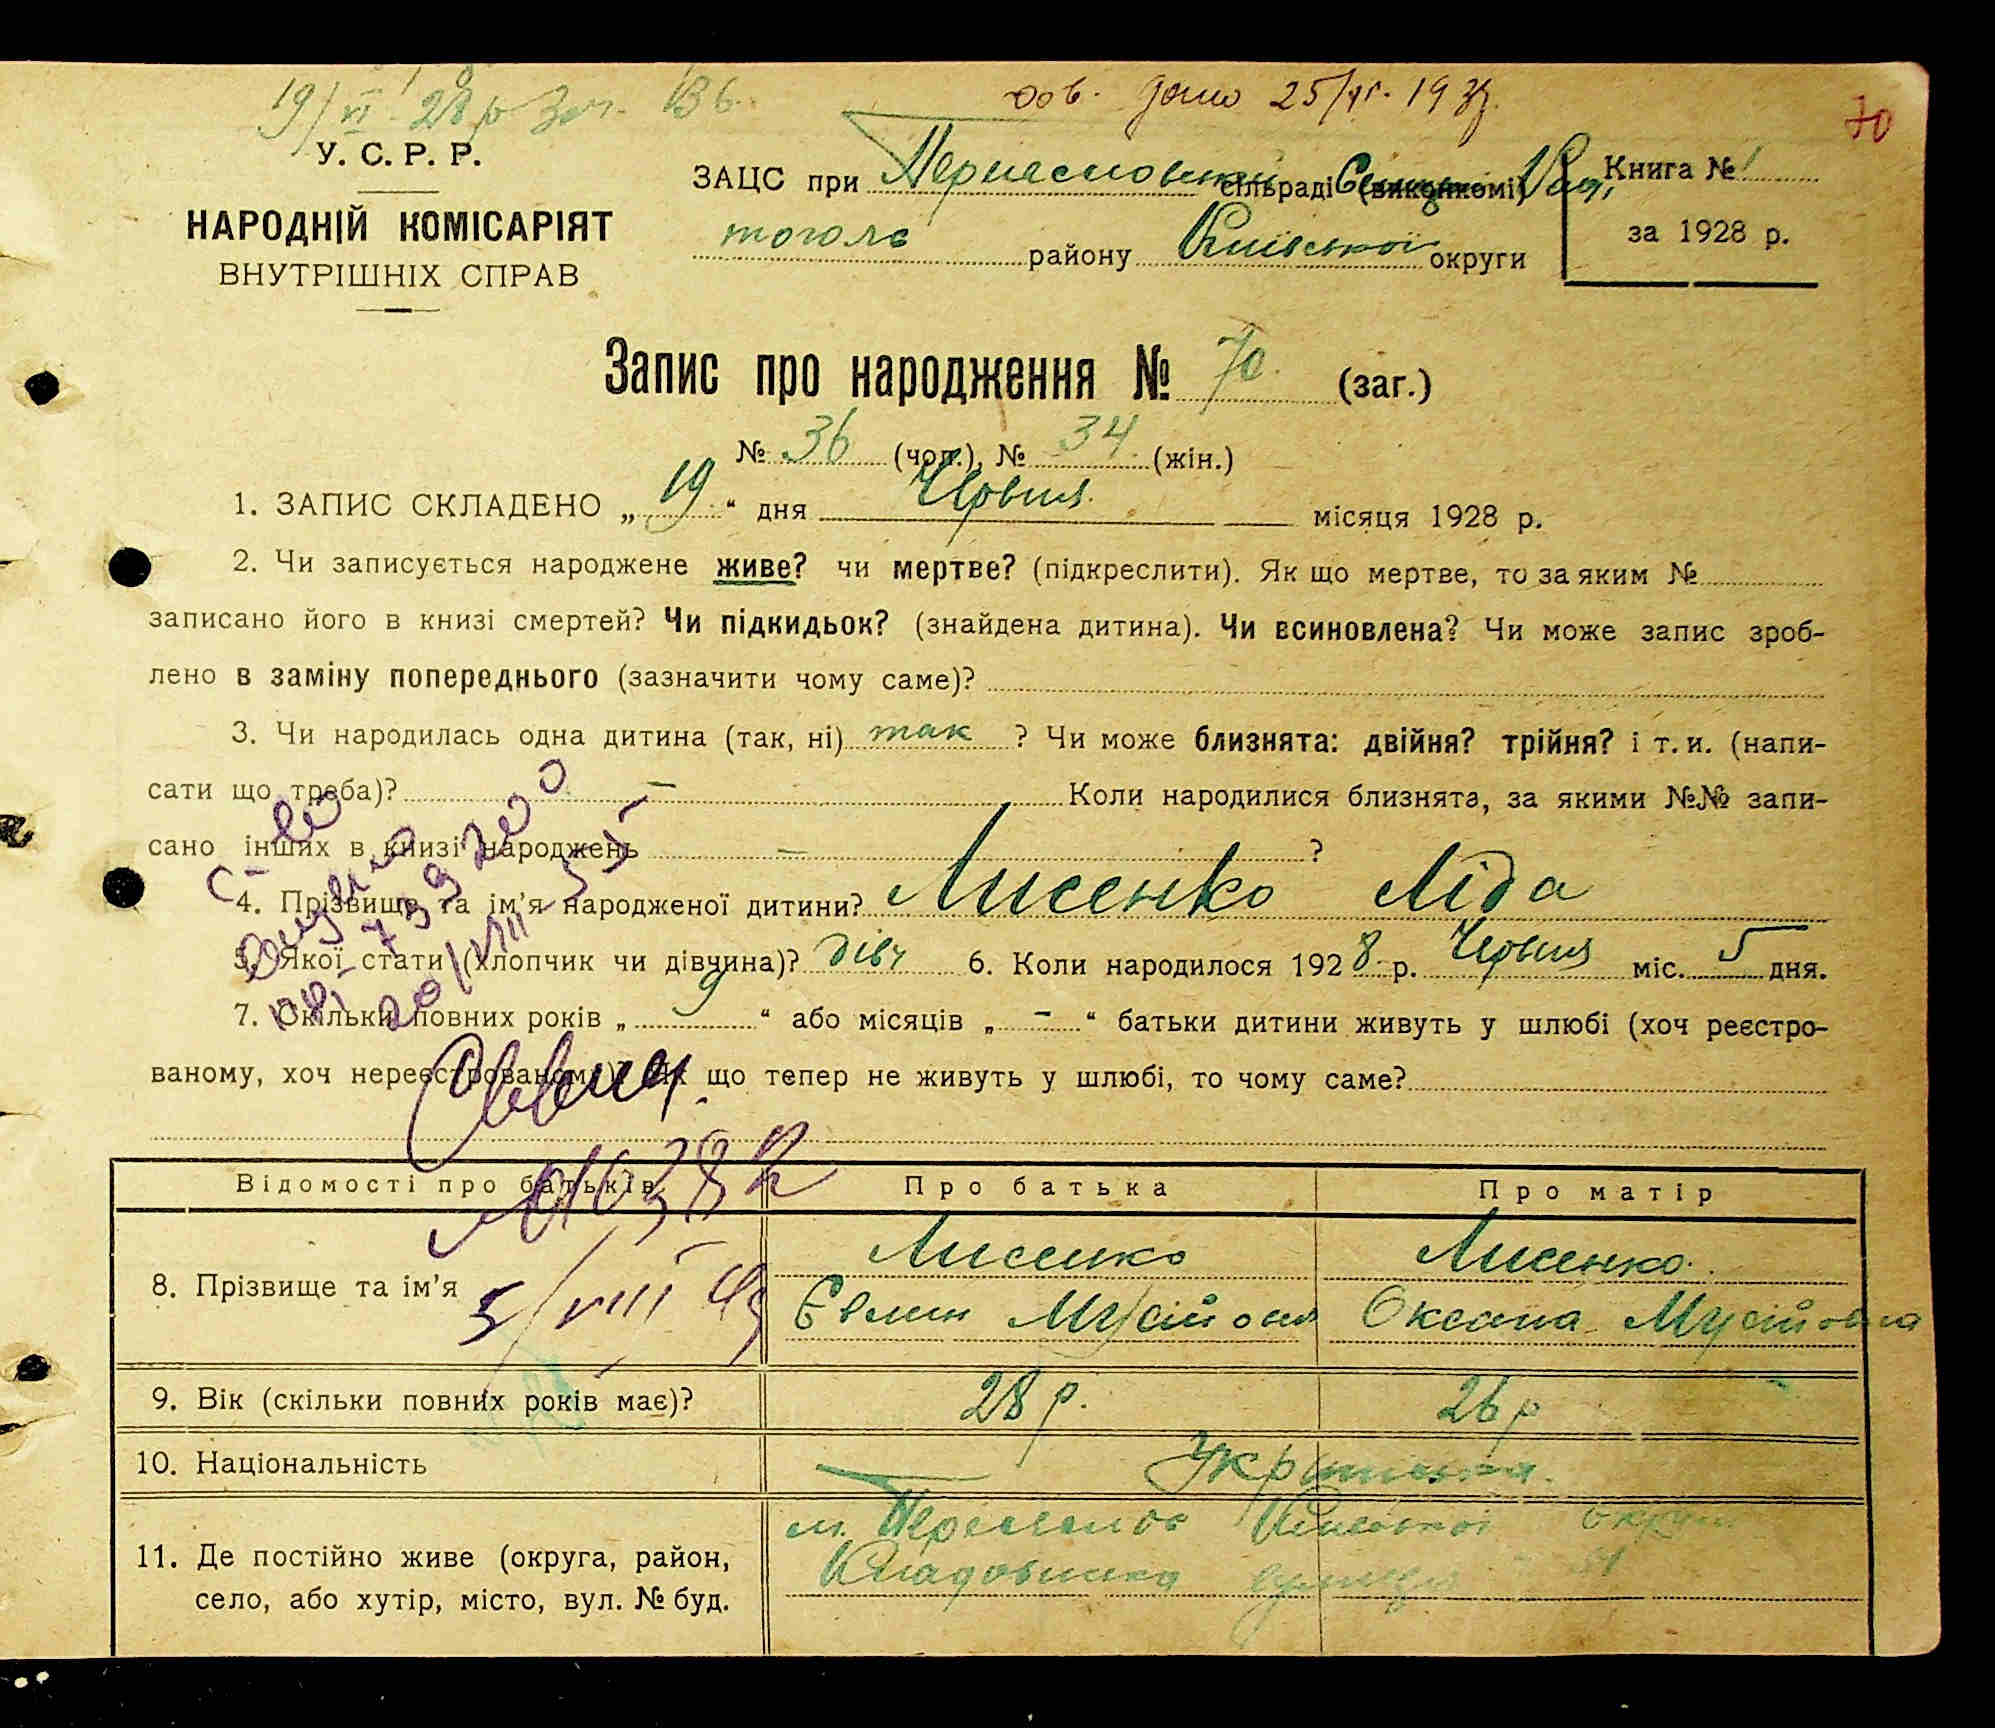 19/VI 28 р 136.
дов. дано 25/VI. 193
70
У. С. Р. Р.
НАРОДНІЙ КОМІСАРІЯТ
ВНУТРІШНІХ СПРАВ
ЗАЦС при сільраді (виконкомі)
району Київської округи
Книга № 1
за 1928 р.
Запис про народження № 70. (заг.)
№ 36 (чол.), № 34 (жін.)
1. ЗАПИС СКЛАДЕНО „ 19 “ дня Червня місяця 1928 р.
2. Чи записується народжене живе? чи мертве? (підкреслити). Як що мертве, то за яким №
записано його в книзі смертей? Чи підкидьок? (знайдена дитина). Чи всиновлена? Чи може запис зроб-
лено в заміну попереднього (зазначити чому саме)?
3. Чи народилась одна дитина (так, ні) так ? Чи може близнята: двійня? трійня? і т. и. (напи-
сати що треба)? — Коли народилися близнята, за якими №№ запи-
сано інших в книзі народжень — ?
4. Прізвище та ім’я народженої дитини? Лисенко Ліда
5. Якої стати (хлопчик чи дівчина)? дівч 6. Коли народилося 1928 р. Червня міс. 5 дня.
7. Скільки повних років „ 9 “ або місяців „ - “ батьки дитини живуть у шлюбі (хоч реєстро-
ваному, хоч нереєстрованому)? Як що тепер не живуть у шлюбі, то чому саме?
Відомості про батьків Про батька Про матір
8. Прізвище та ім’я Лисенко Лисенко.
Мусійов Оксана Мусійовна
5/VIII
9. Вік (скільки повних років має)? 28 р. 26 р
10. Національність Українська.
11. Де постійно живе (округа, район,
село, або хутір, місто, вул. № буд.
м. Переяслов Київської округи
вулиця